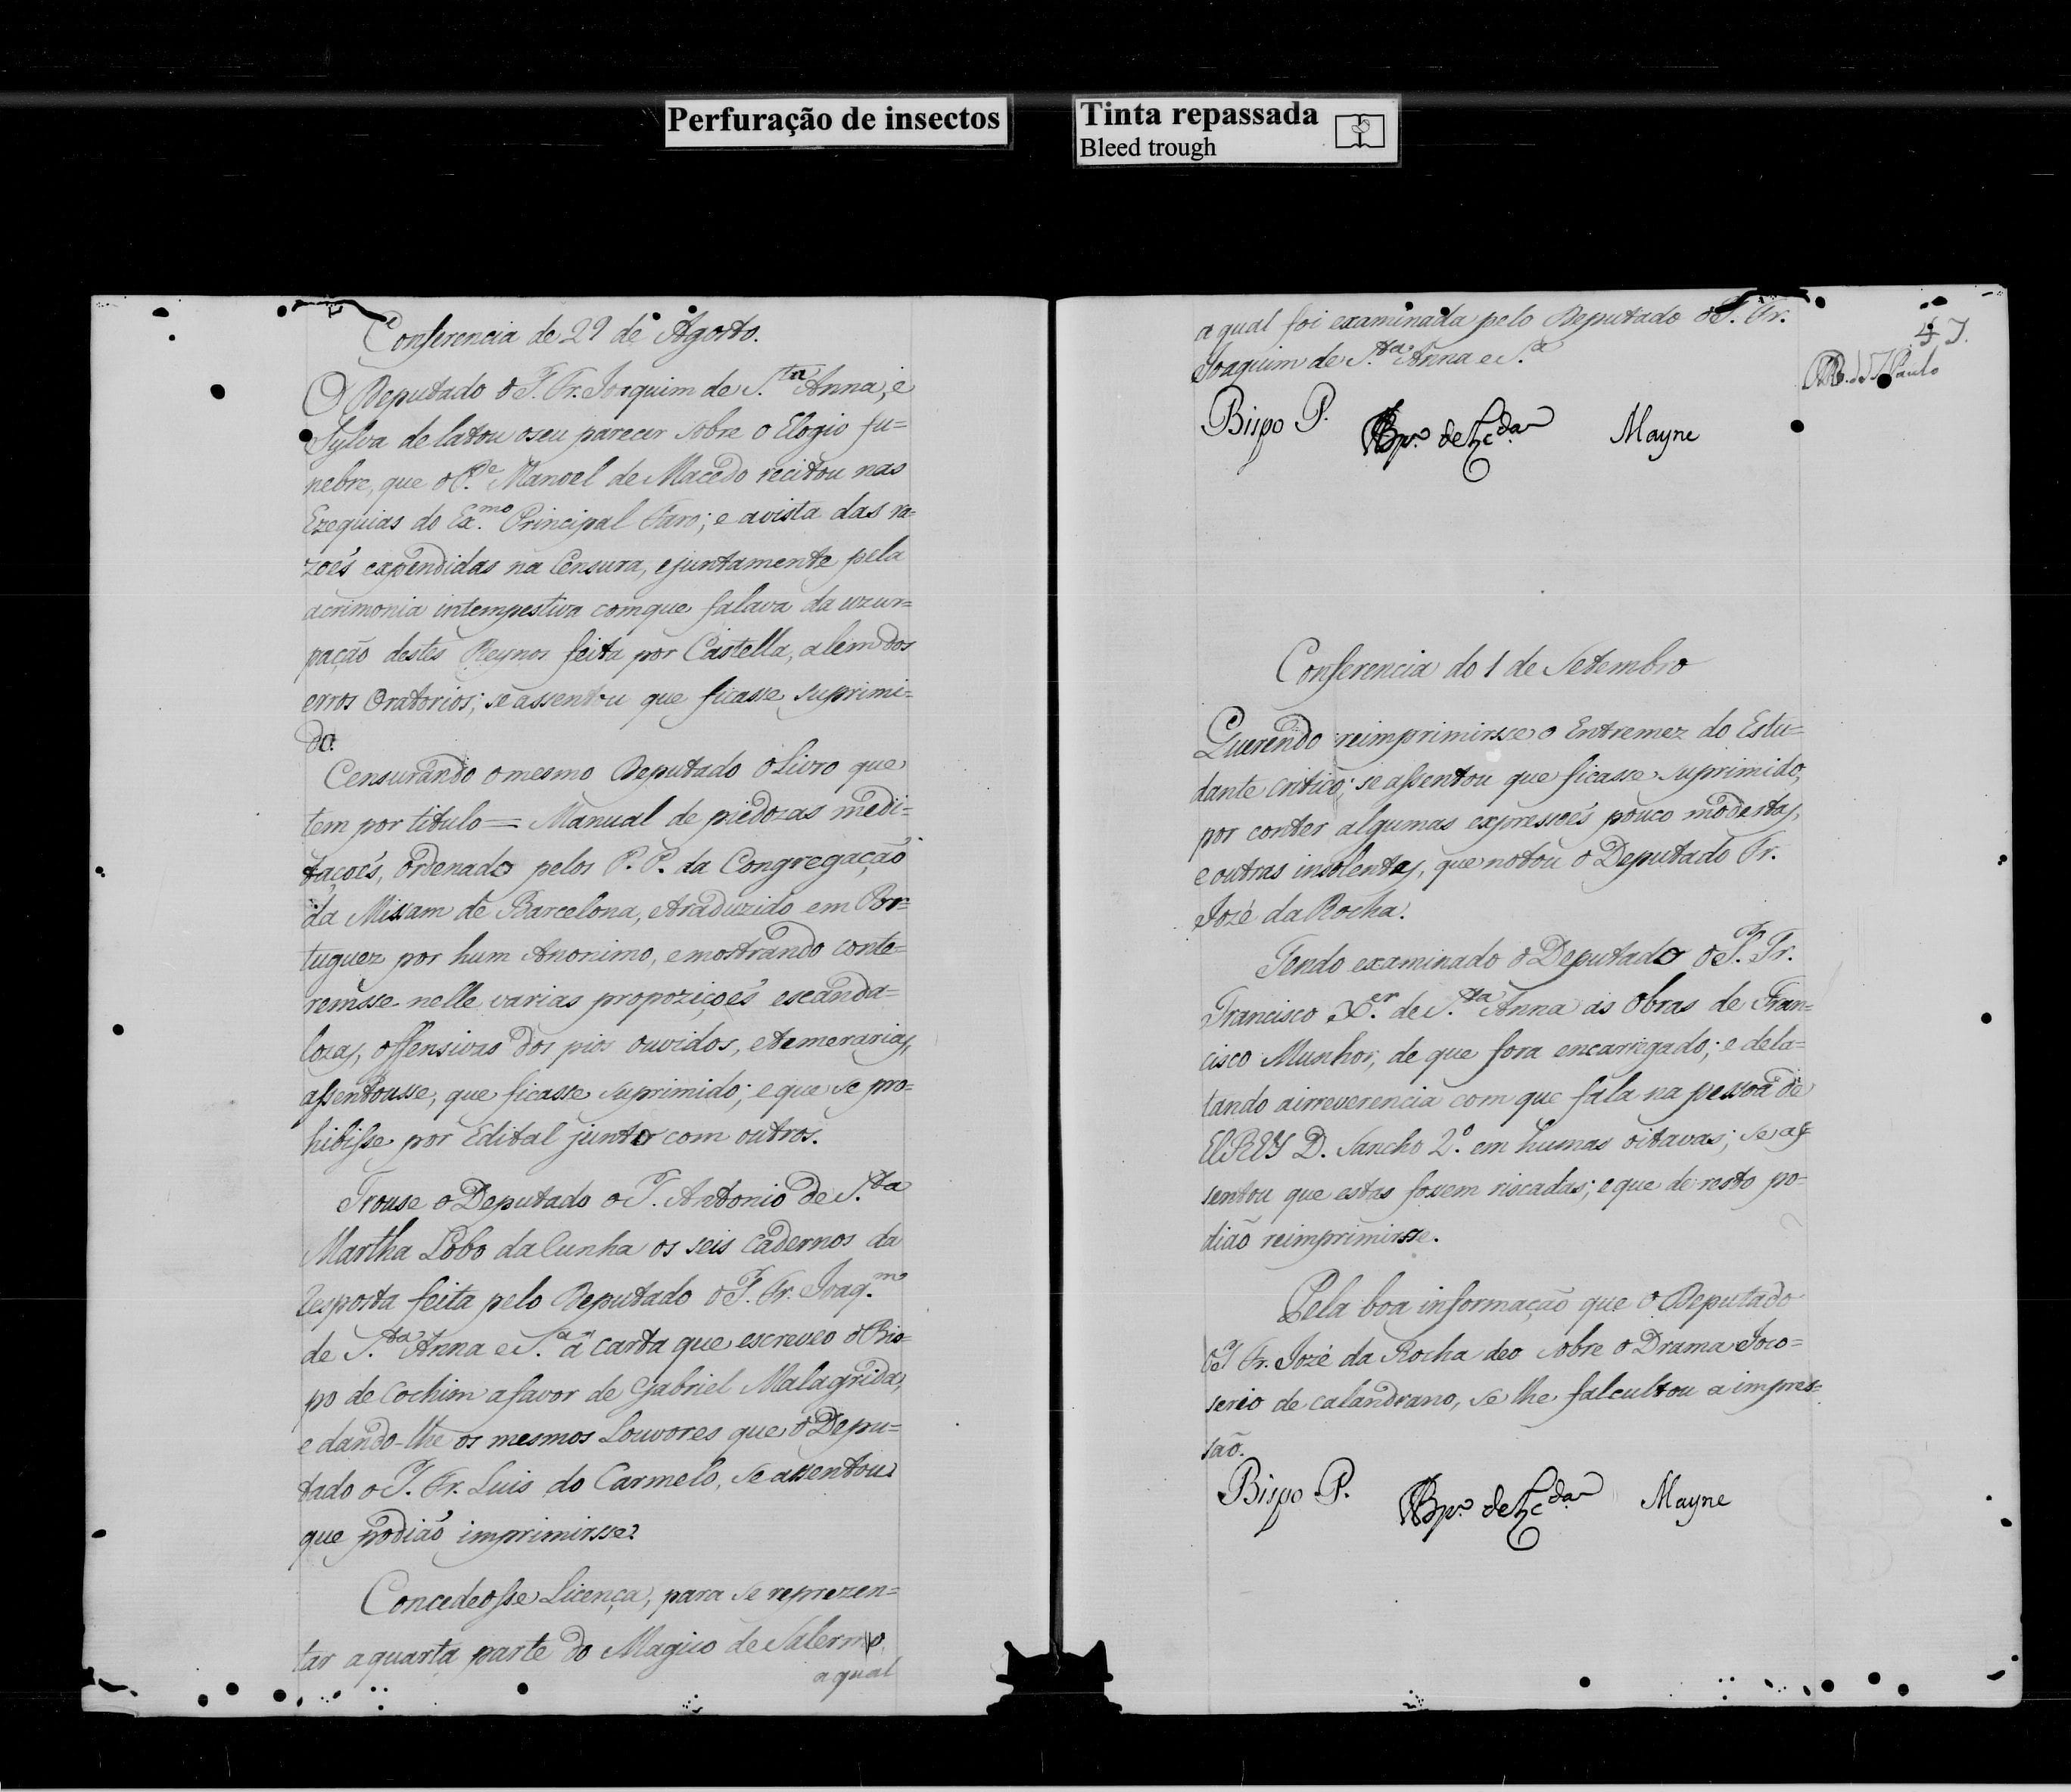 Perfuração de insectos
Tinta repassada
Bleed trough
Conferencia de 29 de Agosto.
O Deputado o P. Fr. Joaquim de S.ta Anna, e
Sylva delatou oseu parecer sobre o Elogio fu=
nebre, que o P.e Manoel de Macedo recitou nas
Ezequias do Ex.mo Principal Faro; e avista das ra=
zoés expendidas na Censura, ejuntamente pela
acrimonia intempestiva comque falava da uzur=
pação destes Reynos feita por Castella, alem dos
erros Oratorios; se assentou que ficasse suprimi=
do.
Censurando omesmo Deputado o Livro que
tem por titulo = Manual de piedozas medi=
taçoés, ordenado pelos P.P. da Congregação
da Missam de Barcelona, etraduzido em Por=
tuguez por hum Anonimo, emostrando conte=
remsse nelle varias propoziçoés escanda=
lozas, offensivas dos pios ouvidos, etemerarias,
assentousse, que ficasse suprimido; e que se pro=
hibisse por Edital junto com outros.
Trouse o Deputado o P. Antonio de S.ta
Martha Lobo da Cunha os seis cadernos da
resposta feita pelo Deputado o P. Fr. Joaq.m
de S.ta Anna e S.a á carta que escreveo o Bis=
po de Cochim afavor de Gabriel Malagrida,
e dando-lhe os mesmos Louvores que o Depu=
tado o P. Fr. Luis do Carmelo, se assentou
que podião imprimirsse.
Concedeosse Licença, para se reprezen=
tar aquarta parte do Magico de Salermo,
a qual
a qual foi examinada pelo Deputado o P. Fr.
Joaquim de S.ta Anna e S.a
47.
Paulo
Bispo P.
Mayne
Conferencia do 1 de Setembro
Querendo reimprimirsse o Entremez do Estu=
dante critico; se assentou que ficasse suprimido,
por conter algumas expressoés pouco modestas,
e outras insolentes, que notou o Deputado Fr.
Jozé da Rocha.
Tendo examinado o Deputado o P. Fr.
Francisco X.er de S.ta Anna as Obras de Fran=
cisco Munhos, de que fora encarregado; e dela=
tando airreverencia com que fala na pessoa de
ElREY D. Sancho 2.o em humas oitavas; se as=
sentou que estas fossem riscadas; e que de resto po=
dião reimprimirsse.
Pela boa informação que o Deputado
o P. Fr. Jozé da Rocha deo sobre o Drama Joco=
serio de calandrano, se lhe falcultou a impres=
são.
Bispo P.
Mayne